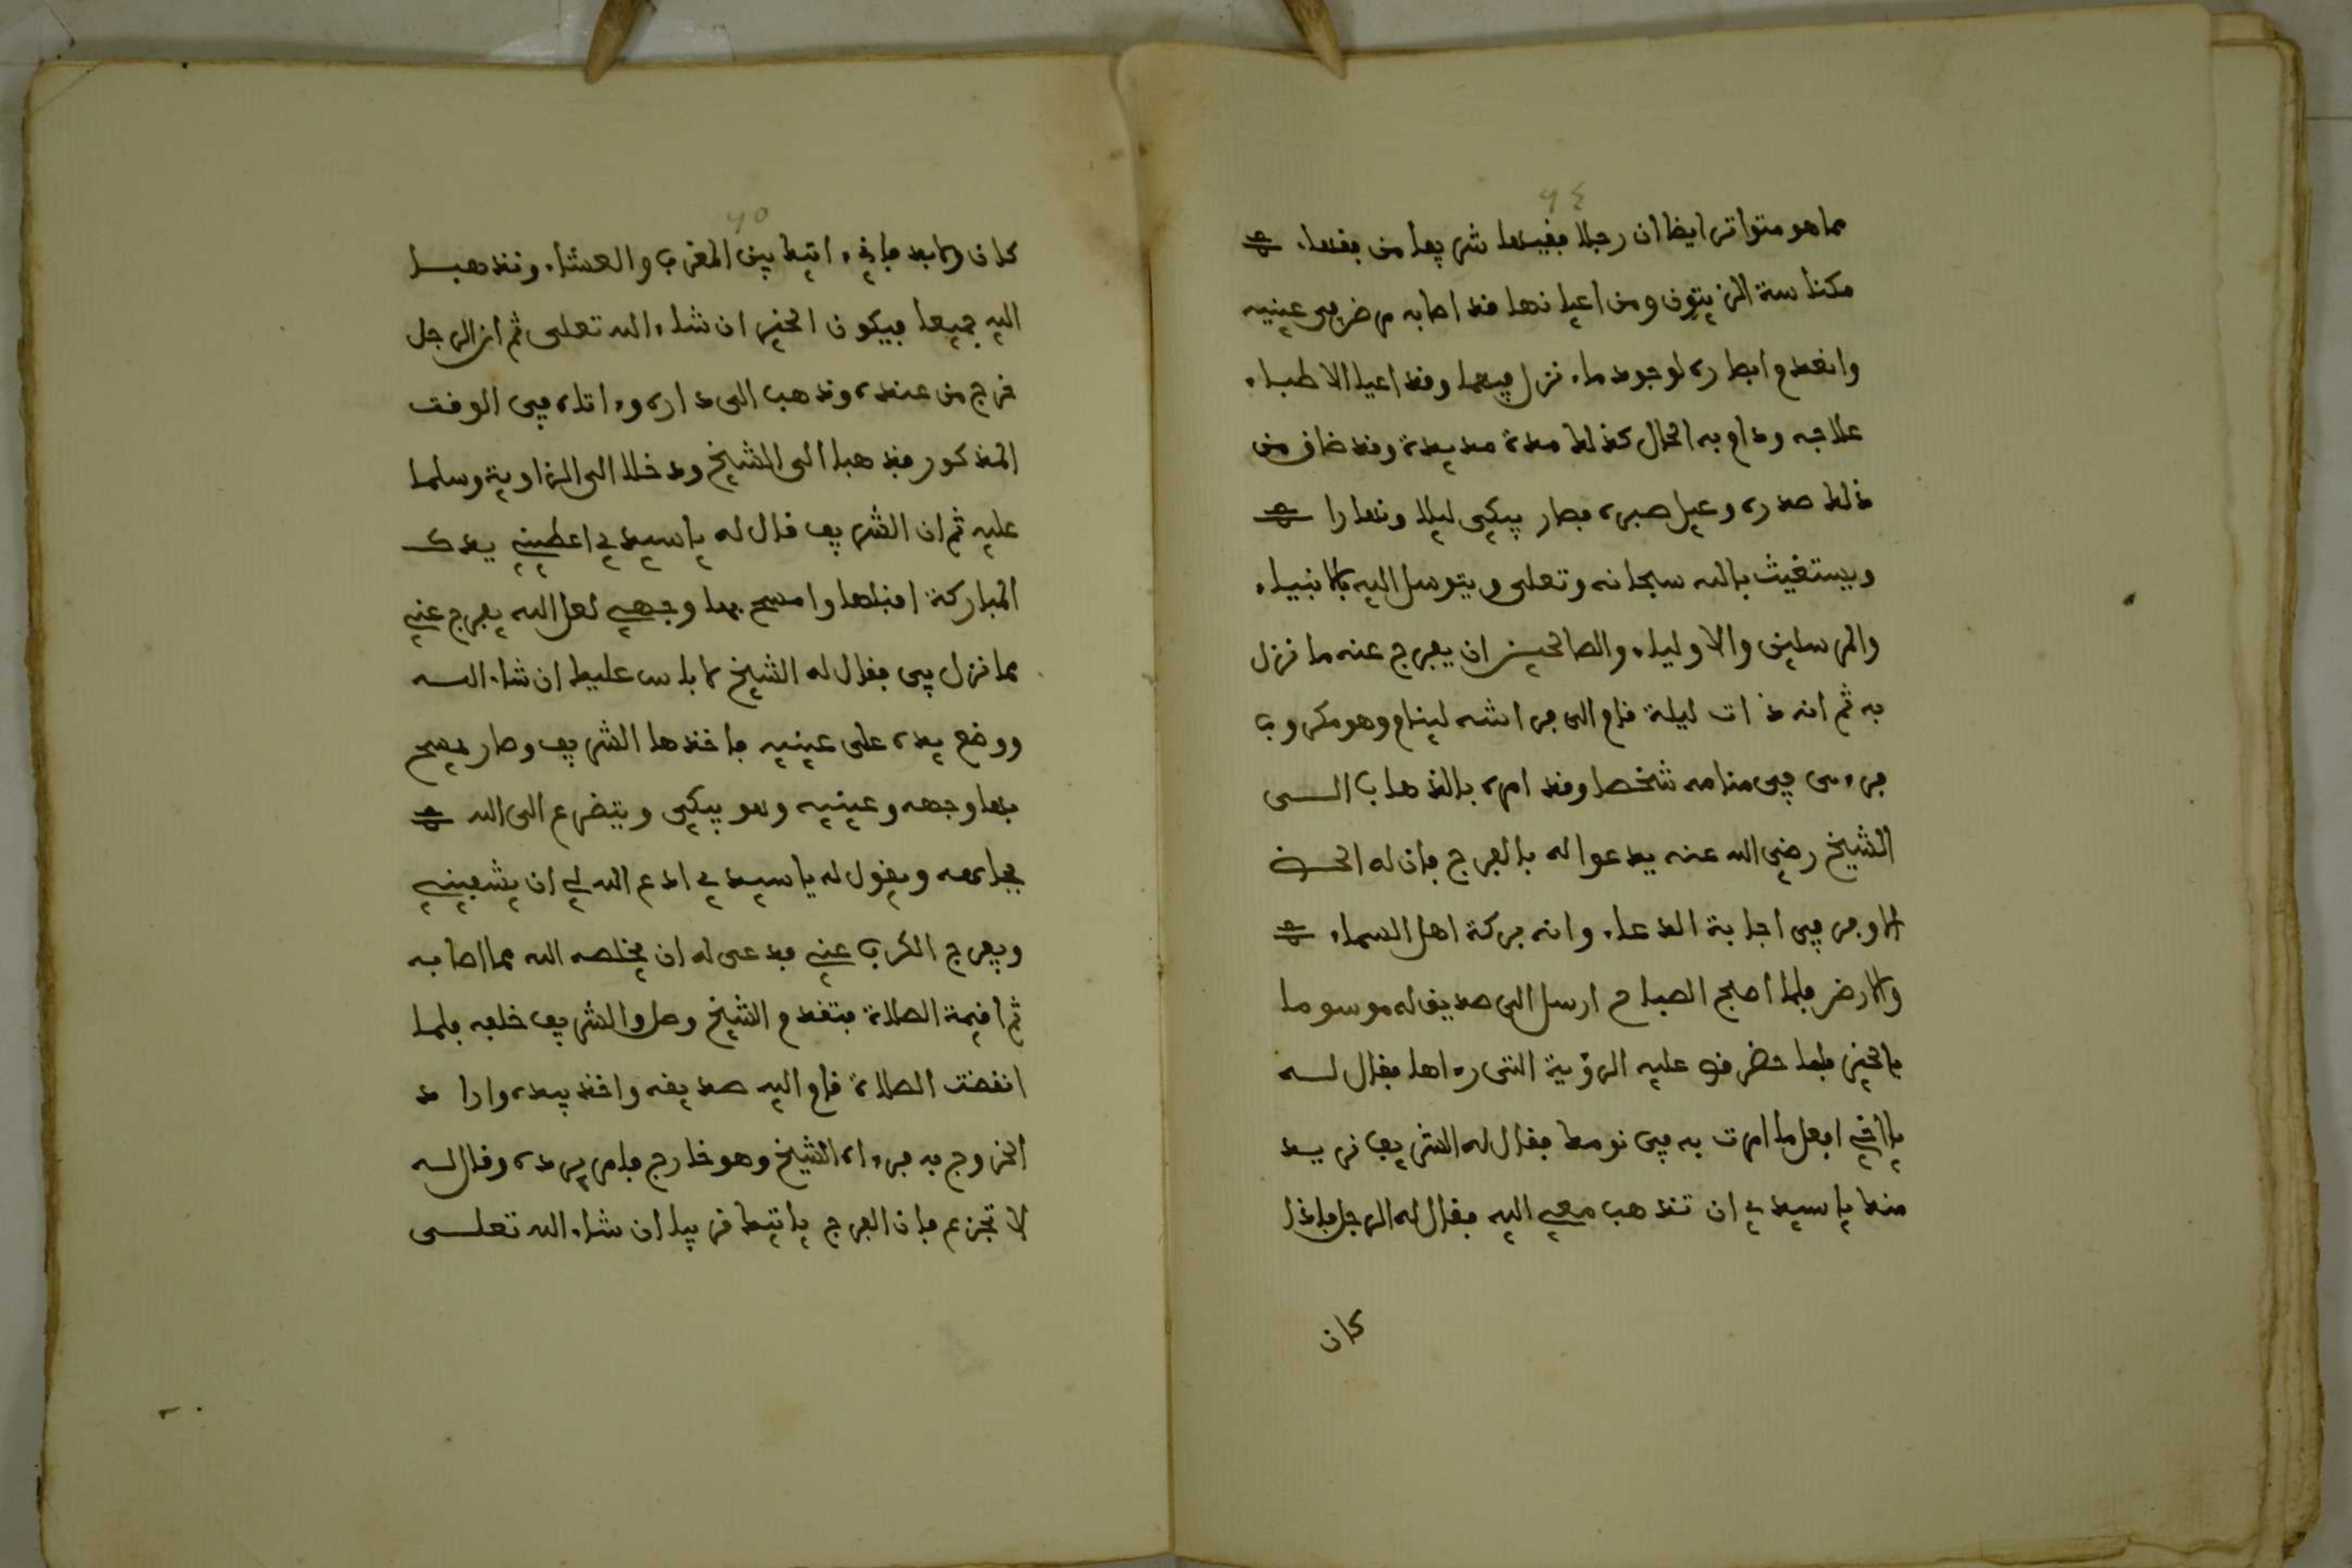 ٩٤
مما هو متواتر ايضا ان رجلا فقيها شريفا من فقهاء
مكناسة الزيتون ومن اعيانها قد اصابه مرض في عينيه
وانعدم ابصاره لوجود ماء نزل فيهما وقد اعيا الاطباء
علاجه ودام به الحال كذلك مدة مديدة وقد ضاق من
ذلك صدره وعيل صبره فصار يبكي ليلا ونهارا
ويستغيث بالله سبحانه وتعلى ويتوسل اليه بالانبياء
والمرسلين والاولياء والصالحين ان يفرج عنه ما نزل
به ثم انه ذات ليلة قام الى فراشه لينام وهو مكروب
فرءى في منامه شخصا وقد امره بالذهاب الى
الشيخ رضي الله عنه يدعوا له بالفرج فان له الحظ
الاوفر في اجابة الدعاء وانه بركة اهل السماء
والارض فلما اصبح الصباح ارسل الى صديق له موسوما
بالخير فلما حضر قص عليه الرؤية التى رءاها فقال له
يا اخي افعل ما امرت به في نومك فقال له الشريف نريد
منك يا سيدي ان تذهب معي اليه فقال له الرجل فاذا
كان
٩٥
كان ولابد فاني ءاتيك بين المغرب والعشاء ونذهبا
اليه جميعا فيكون الخير ان شاء الله تعلى ثم ان الرجل
خرج من عنده وذهب الى داره وءاتاه في الوقت
المذكور فذهبا الى الشيخ ودخلا الى الزاوية وسلما
عليه ثم ان الشريف قال له يا سيدي اعطيني يدك
المباركة اقبلها وامسح بها وجهي لعل الله يفرج عني
مما نزل بي فقال له الشيخ لا باس عليك ان شاء الله
ووضع يده على عينيه فاخذها الشريف وصار يمسح
بها وجهه وعينيه وهو يبكي ويتضرع الى الله
بجامعه ويقول له يا سيدي ادع الله لي ان يشفيني
ويفرج الكرب عني فدعى له ان يخلصه الله مما اصابه
ثم اقيمة الصلاة فتقدم الشيخ وصلى والشريف خلفه فلما
انقضت الصلاة قام اليه صديقه واخذ بيده واراد
الخروج به فرءاه الشيخ وهو خارج فامر برده وقال له
لا تجزع فان الفرج ياتيك قريبا ان شاء الله تعلى